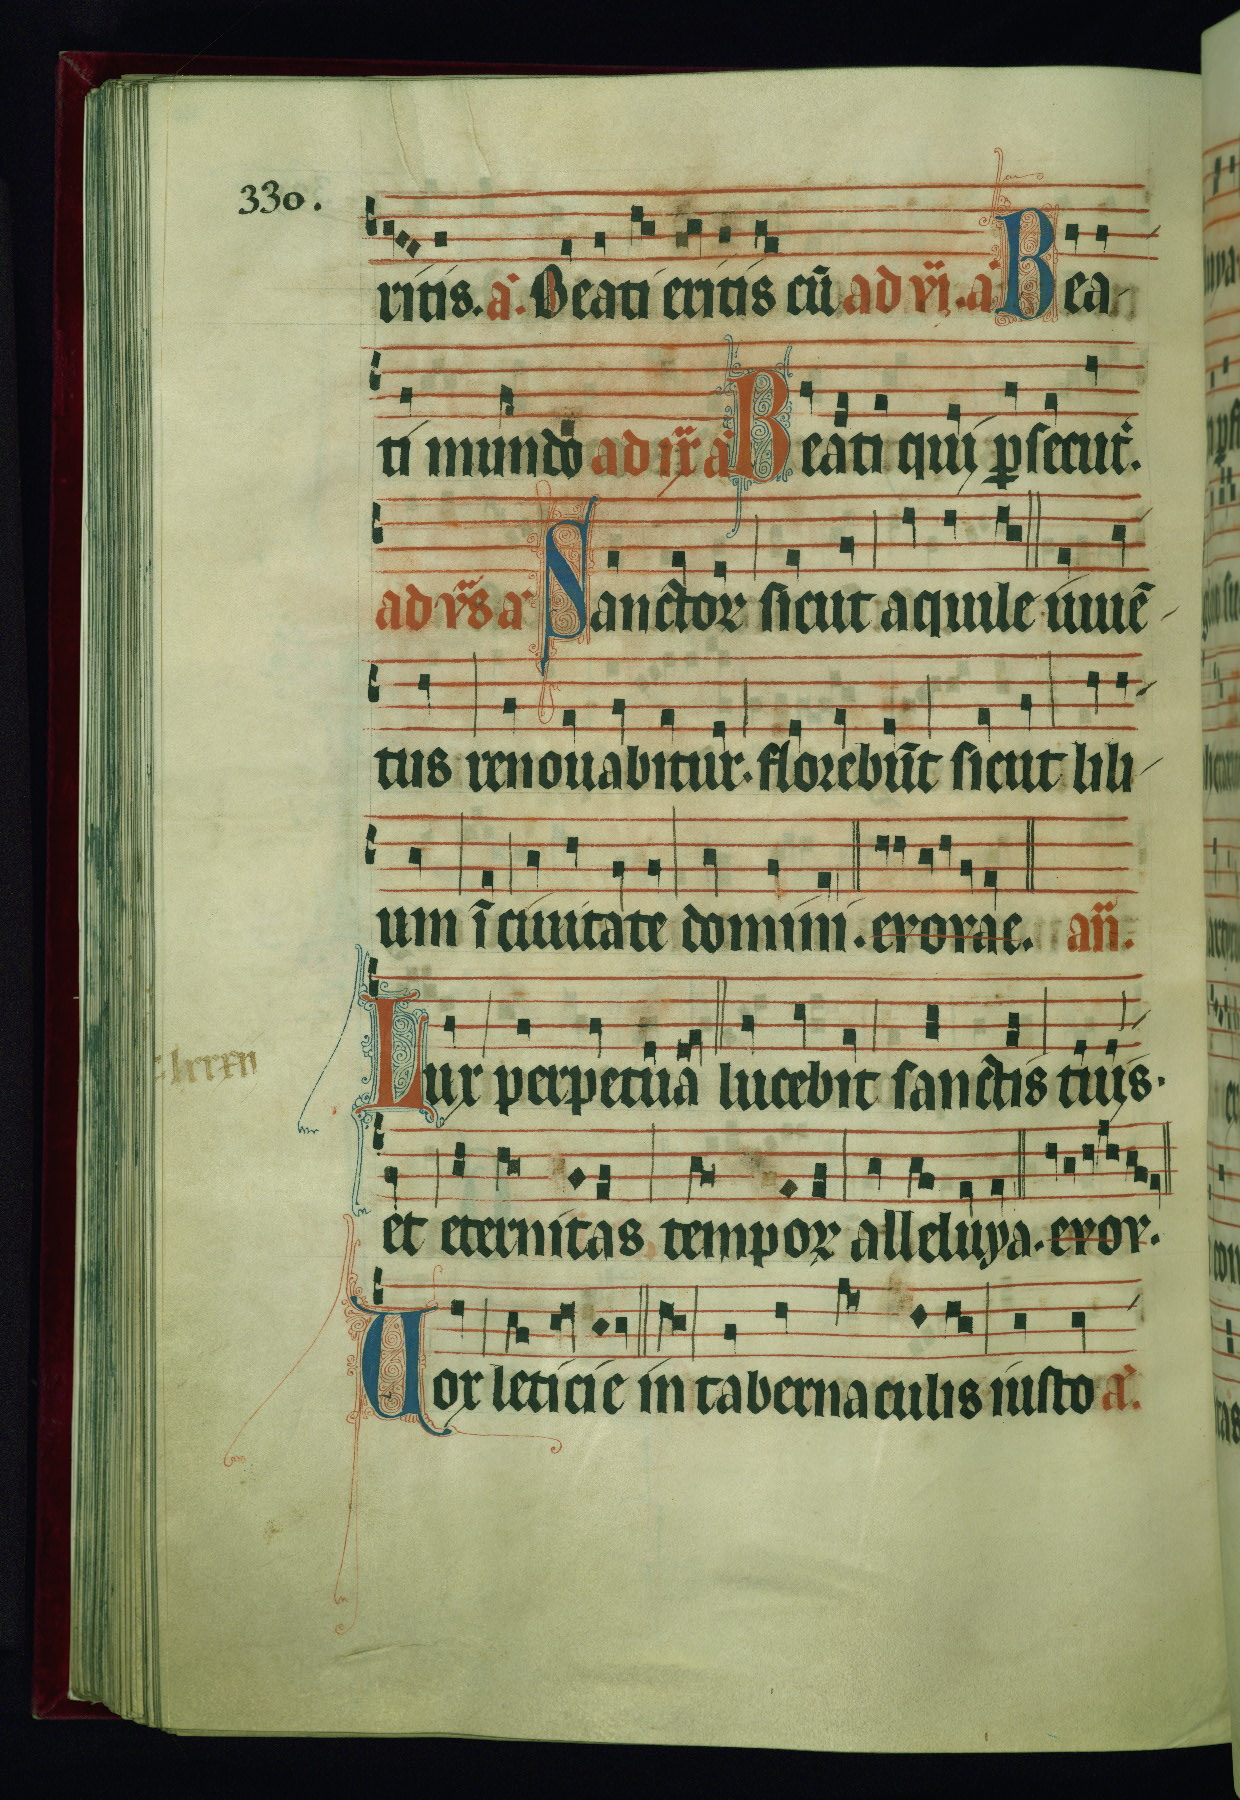 330.
ritis. a. Beati eritis cū ad vi. a Bea
ti mundo ad ix a Beati qui ꝑsecut.
ad vs a Sanctoꝝ sicut aquile iuuē
tus renouabitur. florebūt sicut lili
um ī ciuitate domini. evovae. an.
Lux perpetua lucebit sanctis tuis.
et eternitas tempoꝝ alleluya. evov.
Vox leticie in tabernaculis iusto a.